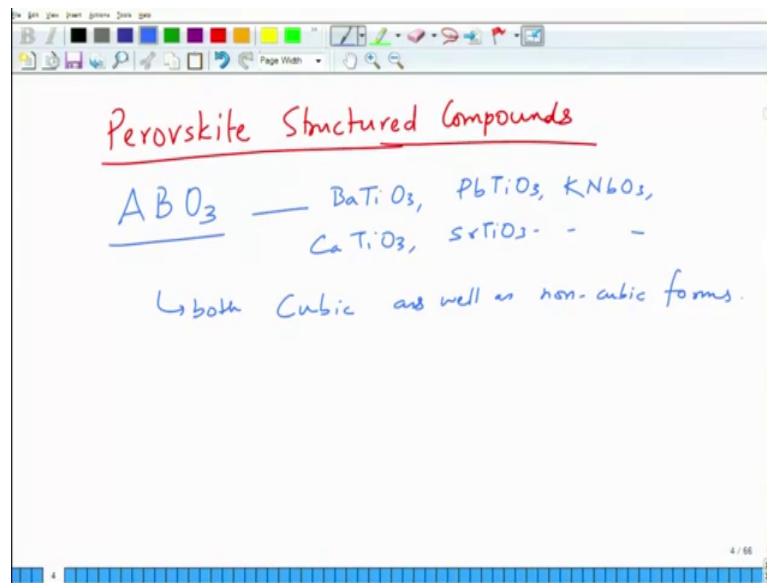 File Edit View Insert Actions Tools Help
B I
Page Width
Perovskite Structured Compounds
ABO3 — BaTiO3, PbTiO3, KNbO3,
CaTiO3, SrTiO3 - - -
↳ both Cubic as well as non-cubic forms.
4 / 66
4